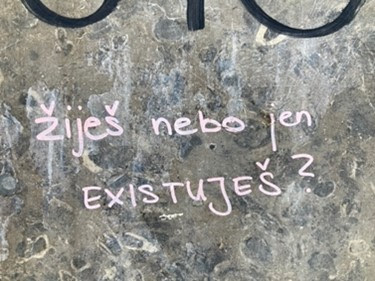 žiješ nebo jen
EXISTUJEŠ?